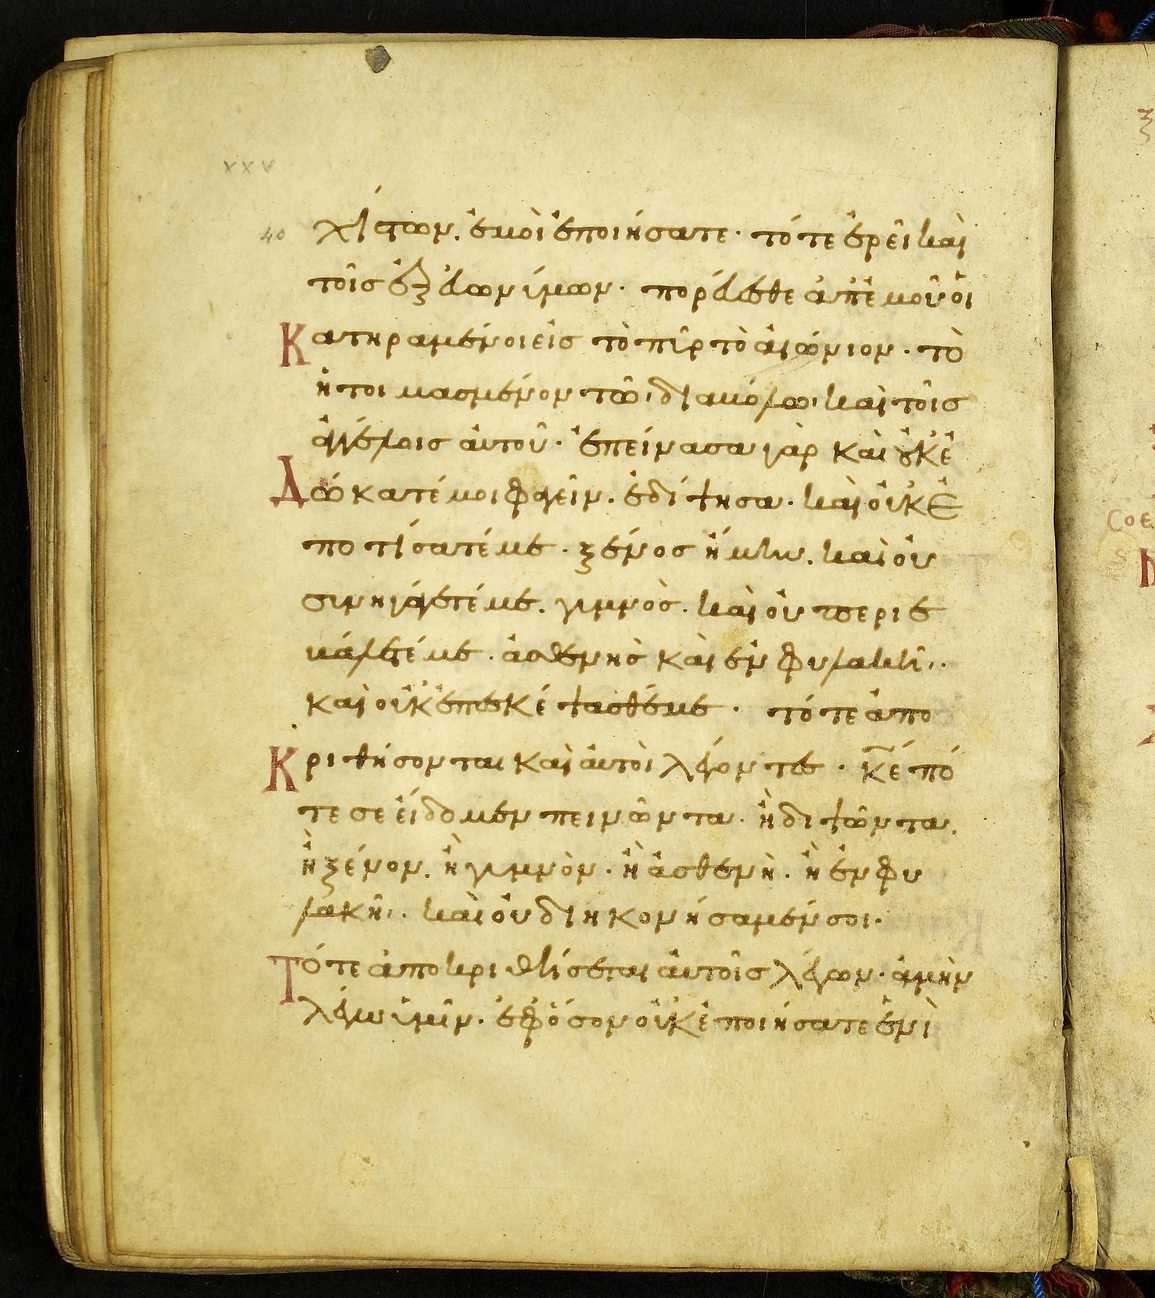 xxv
40 χίστων. ἐμοὶ ἐποιήσατε· τότε ἐρεῖ καὶ
τοῖς ἐξ εὐωνύμων· πορεύεσθε ἀπ' ἐμοῦ οἱ
Κατηραμένοι εἰς τὸ πῦρ τὸ αἰώνιον· τὸ
ἡτοιμασμένον τῶ διαβόλω, καὶ τοῖς
ἀγγέλοις αὐτοῦ· ἐπείνασα γὰρ καὶ οὐκ ἐ
Δώκατέ μοι φαγεῖν. ἐδίψησα· καὶ οὐκ ἐ
ποτίσατέ με· ξένος ἤμην. καὶ οὐ
συνηγάγετέ με. γυμνὸς. καὶ οὐ περιε
βάλετέ με· ἀσθενὴς καὶ ἐν φυλακῆ·
καὶ οὐκ ἐπεσκέψασθέ με· τότε ἀπο
Κριθήσονται καὶ αὐτοὶ λέγοντες· κε πό
τε σε εἴδομεν πεινῶντα· ἢ διψῶντα.
ἢ ξένον. ἢ γυμνὸν· ἢ ἀσθενῆ· ἢ ἐν φυ
λακῆ·. καὶ οὐ διηκονήσαμέν σοι·
Τότε ἀποκριθήσεται αὐτοῖς λέγων· ἀμὴν
λέγω ὑμῖν· ἐφ' ὅσον οὐκ ἐποιήσατε ἑνὶ